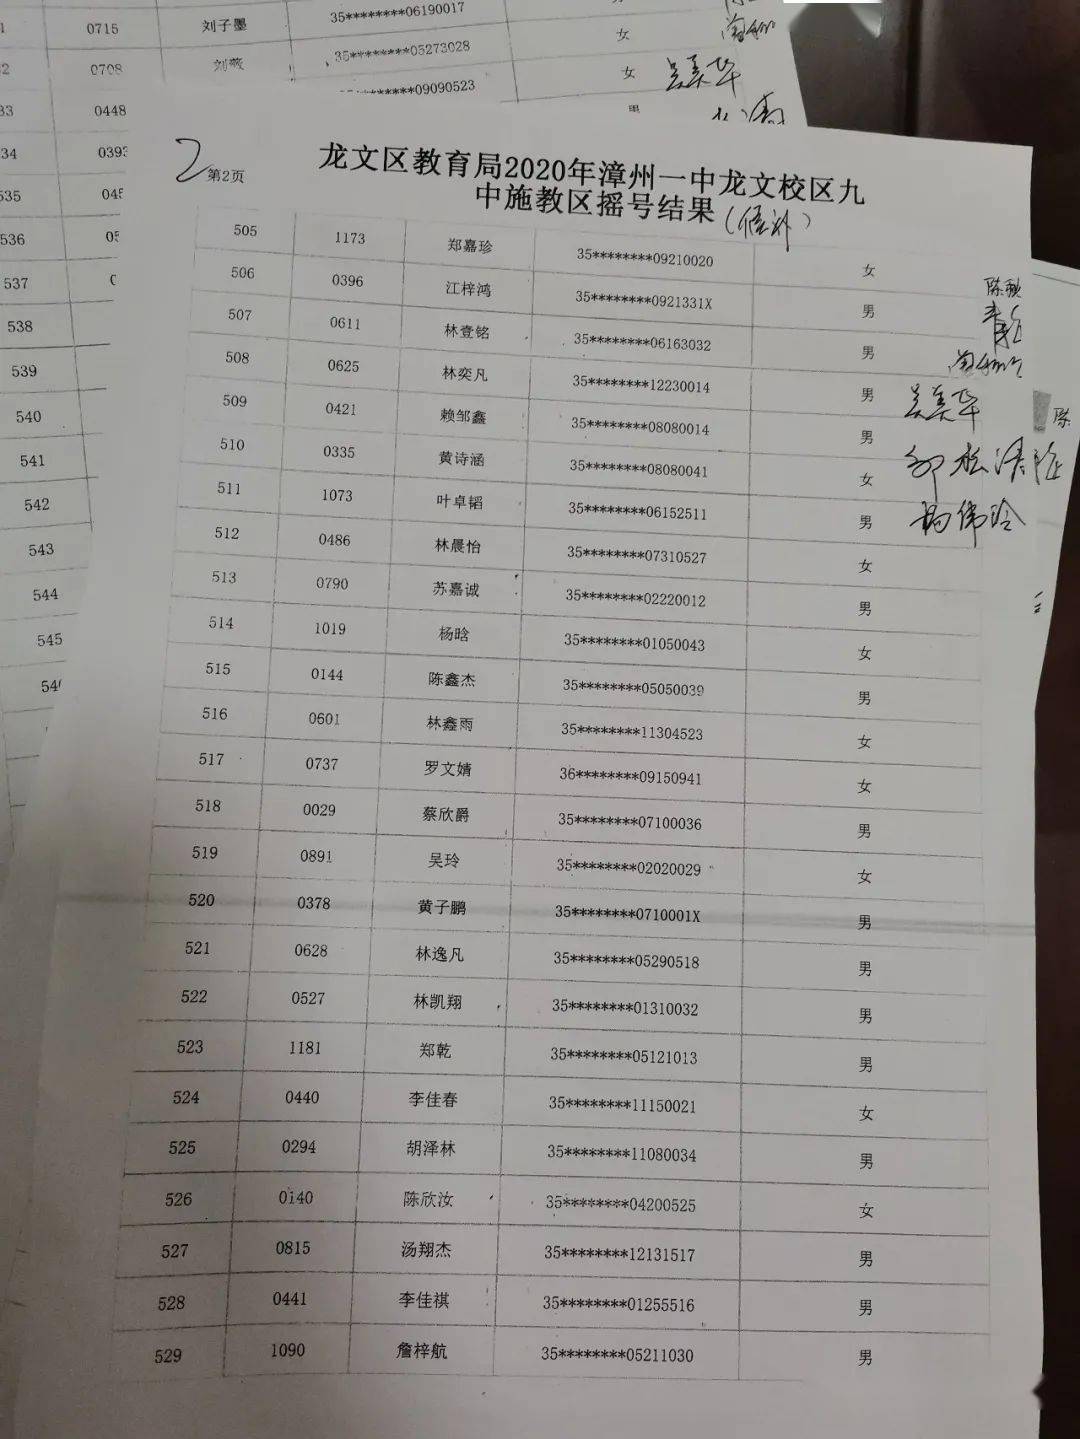 0715 刘子墨 35********06190017
0708 刘薇 35********05273028 女
33 0448 ********09090523 女 吴美华
34 039
535 04
536 0
537
538
539
540
541
542
543
544
545
第2页
龙文区教育局2020年漳州一中龙文校区九
中施教区摇号结果(候补)
505 1173 郑嘉珍 35********09210020 女
506 0396 江梓鸿 35********0921331X 男
507 0611 林壹铭 35********06163032 男
508 0625 林奕凡 35********12230014 男
509 0421 赖邹鑫 35********08080014 男
510 0335 黄诗涵 35********08080041 女
511 1073 叶卓韬 35********06152511 男
512 0486 林晨怡 35********07310527 女
513 0790 苏嘉诚 35********02220012 男
514 1019 杨晗 35********01050043 女
515 0144 陈鑫杰 35********05050039 男
516 0601 林鑫雨 35********11304523 女
517 0737 罗文婧 36********09150941 女
518 0029 蔡欣爵 35********07100036 男
519 0891 吴玲 35********02020029 女
520 0378 黄子鹏 35********0710001X 男
521 0628 林逸凡 35********05290518 男
522 0527 林凯翔 35********01310032 男
523 1181 郑乾 35********05121013 男
524 0440 李佳春 35********11150021 女
525 0294 胡泽林 35********11080034 男
526 0140 陈欣汝 35********04200525 女
527 0815 汤翔杰 35********12131517 男
528 0441 李佳祺 35********01255516 男
529 1090 詹梓航 35********05211030 男
吴美华
杨伟玲
陈